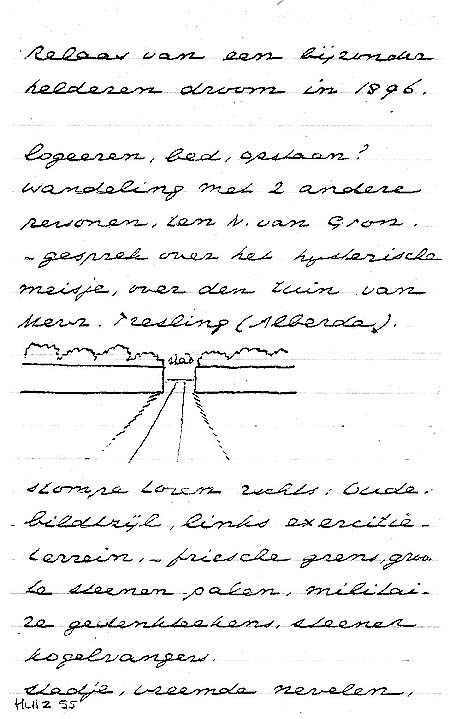 Relaas van een bijzonder
helderen droom in 1896.
logeeren, bed, opstaan?
wandeling met 2 andere
personen, ten N. van Gron.
- gesprek over het hysterische
meisje, over den tuin van
Mevr. Tresling (Alberda,).
stad
stompe toren rechts. Oude.
bildtzijl, links exercitie-
terrein, - friesche grens, groo
te steenen palen, militai-
re gedenkteekens, steenen
kogelvangers.
stadje, vreemde nevelen,
HLHZ 55